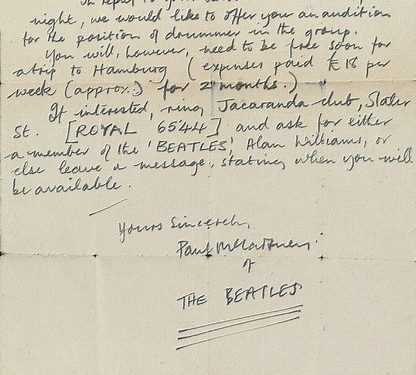 In reply to your
night, we would like to offer you an audition
for the position of drummer in the group.
You will, however, need to be free soon for
a trip to Hamburg (expenses paid £18 per
week (approx.) for 2 months.)
If interested, ring Jacaranda club, Slater
St. [ROYAL 6544] and ask for either
a member of the 'BEATLES', Alan Williams, or
else leave a message, stating when you will
be available.
Yours Sincerely,
Paul McCartney.
of
THE BEATLES